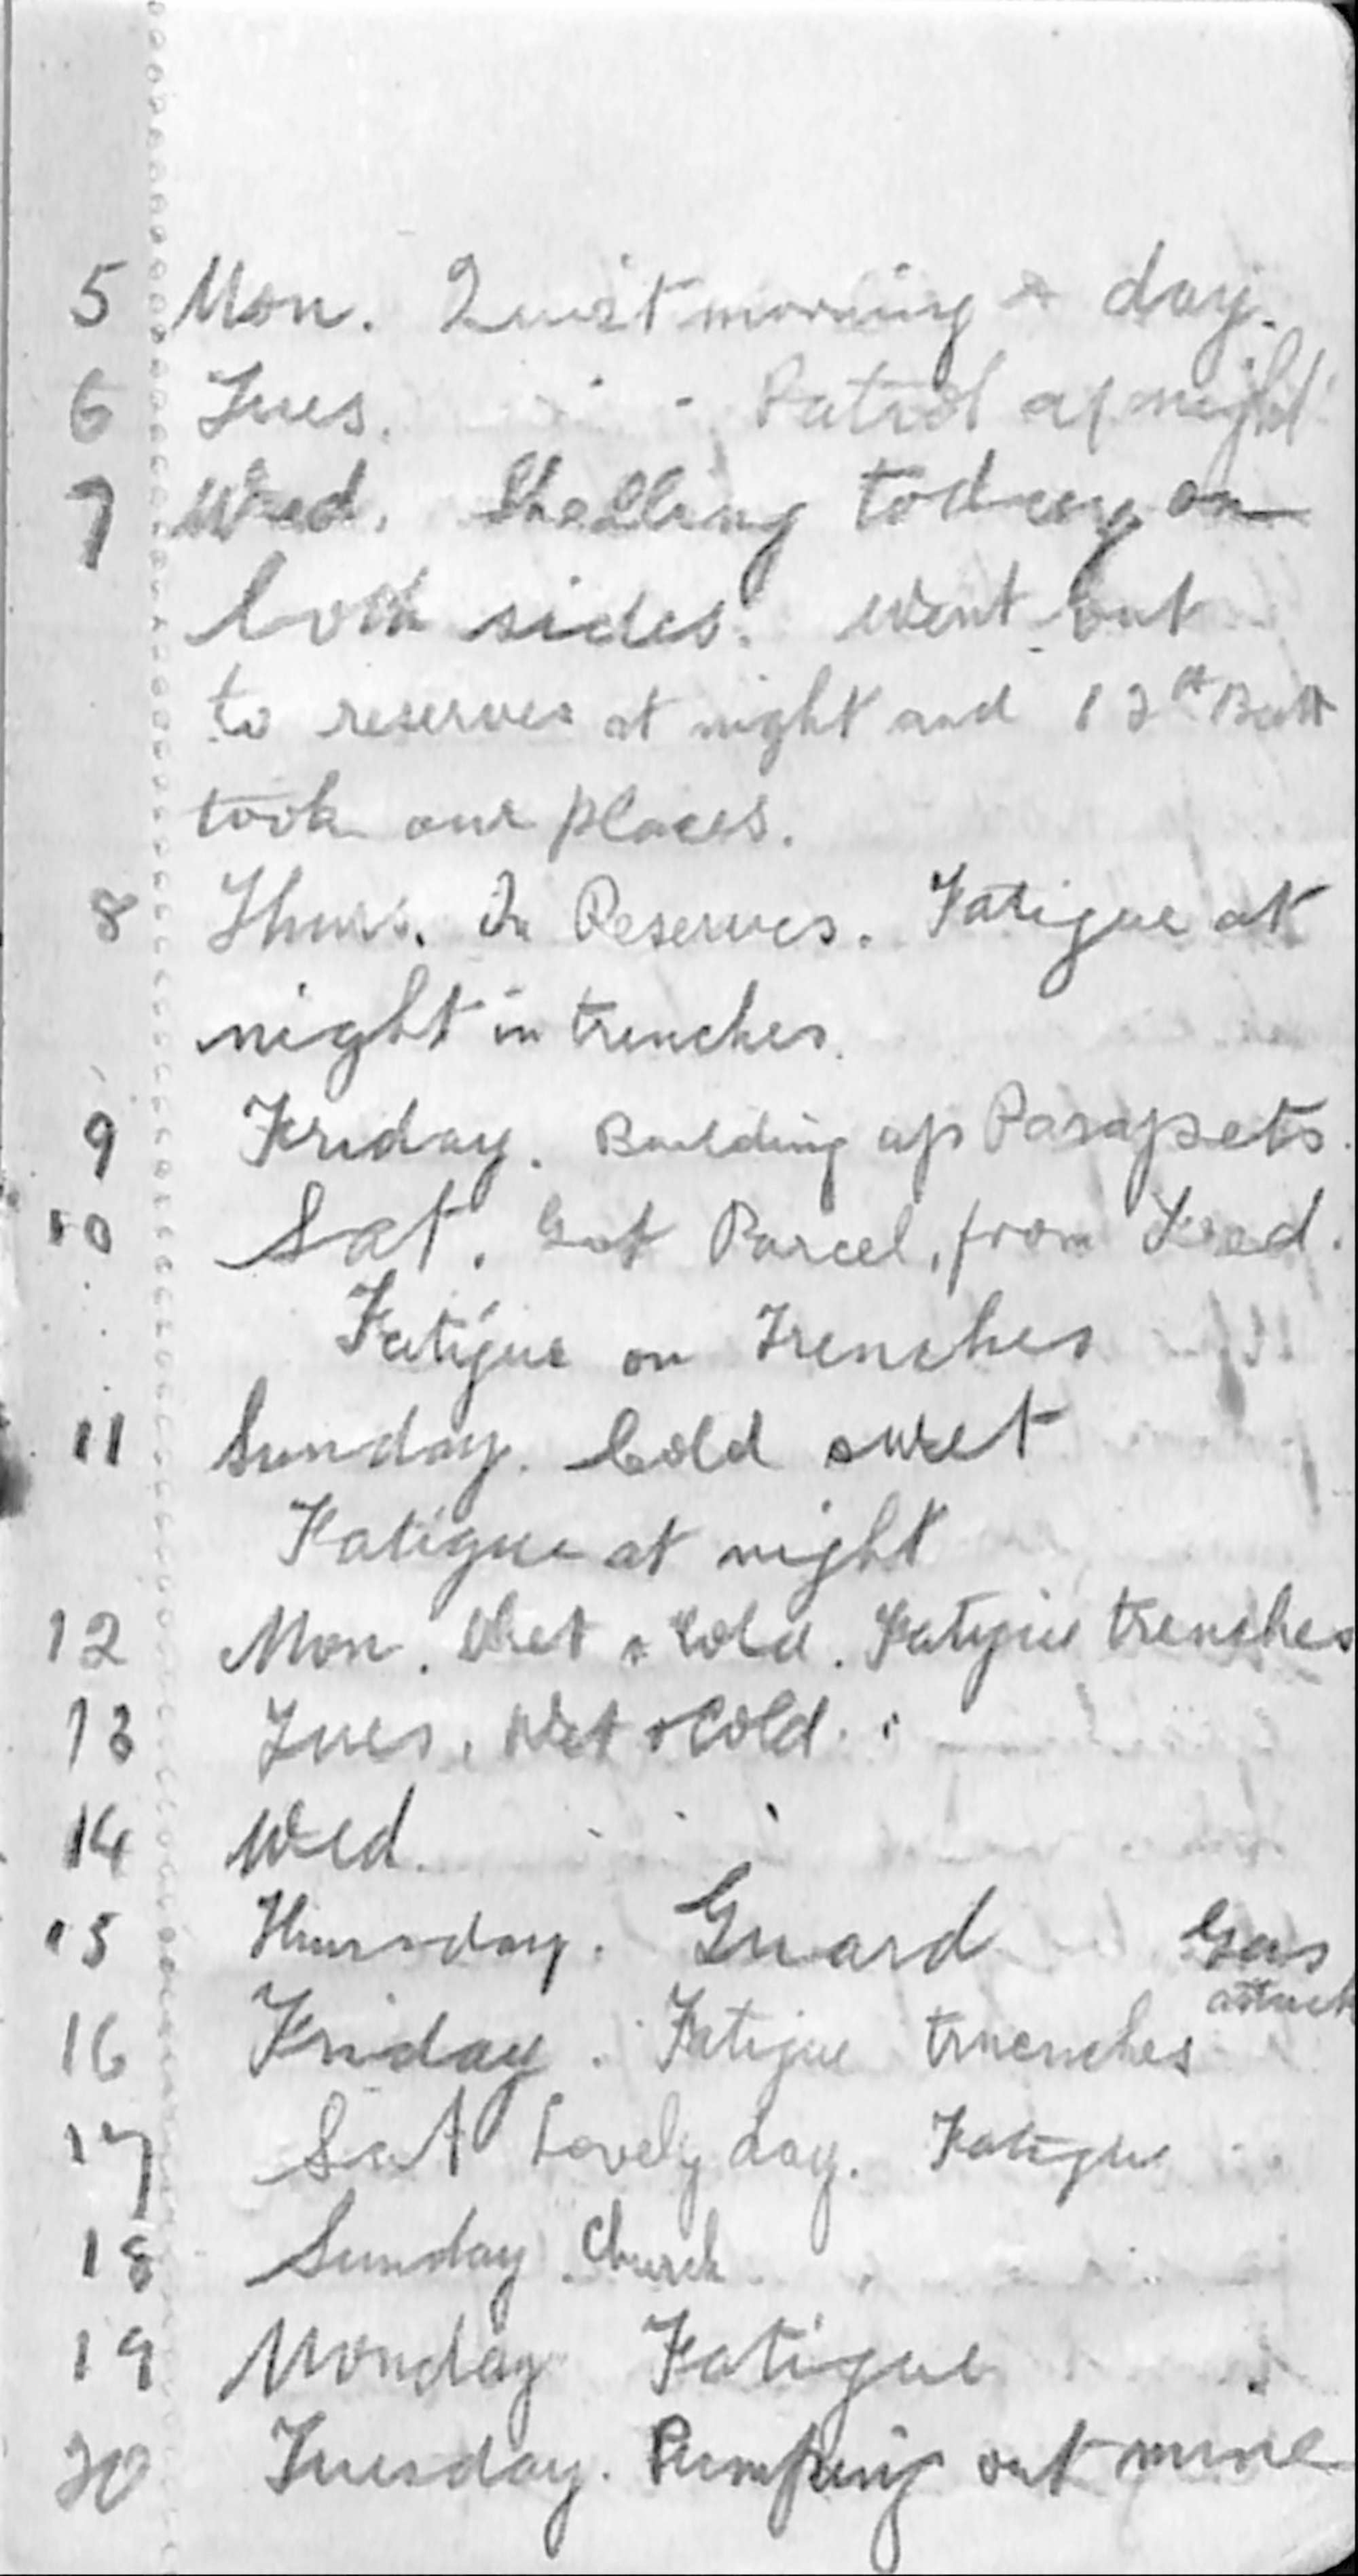 5 Mon. Quiet morning & day.
6 Tues. " " Patrol at night
7 Wed. Shelling today on
both sides. Went out
to reserves at night and 13th Batt
took our places.
8 Thurs. In Reserves. Fatigue at
night in trenches.
9 Friday. Building up Parapets.
10 Sat. Got Parcel, from Fred.
Fatigue on Trenches
11 Sunday. Cold & wet
Fatigue at night
12 Mon. Wet & Cold. Fatigue trenches
13 Tues. Wet & Cold. "
14 Wed. " " "
15 Thursday. Guard Gas
attack
16 Friday. Fatigue truenches
17 Sat Lovely day. Fatigue
18 Sunday. Church
19 Monday Fatigue
20 Tuesday. Pumping out mine